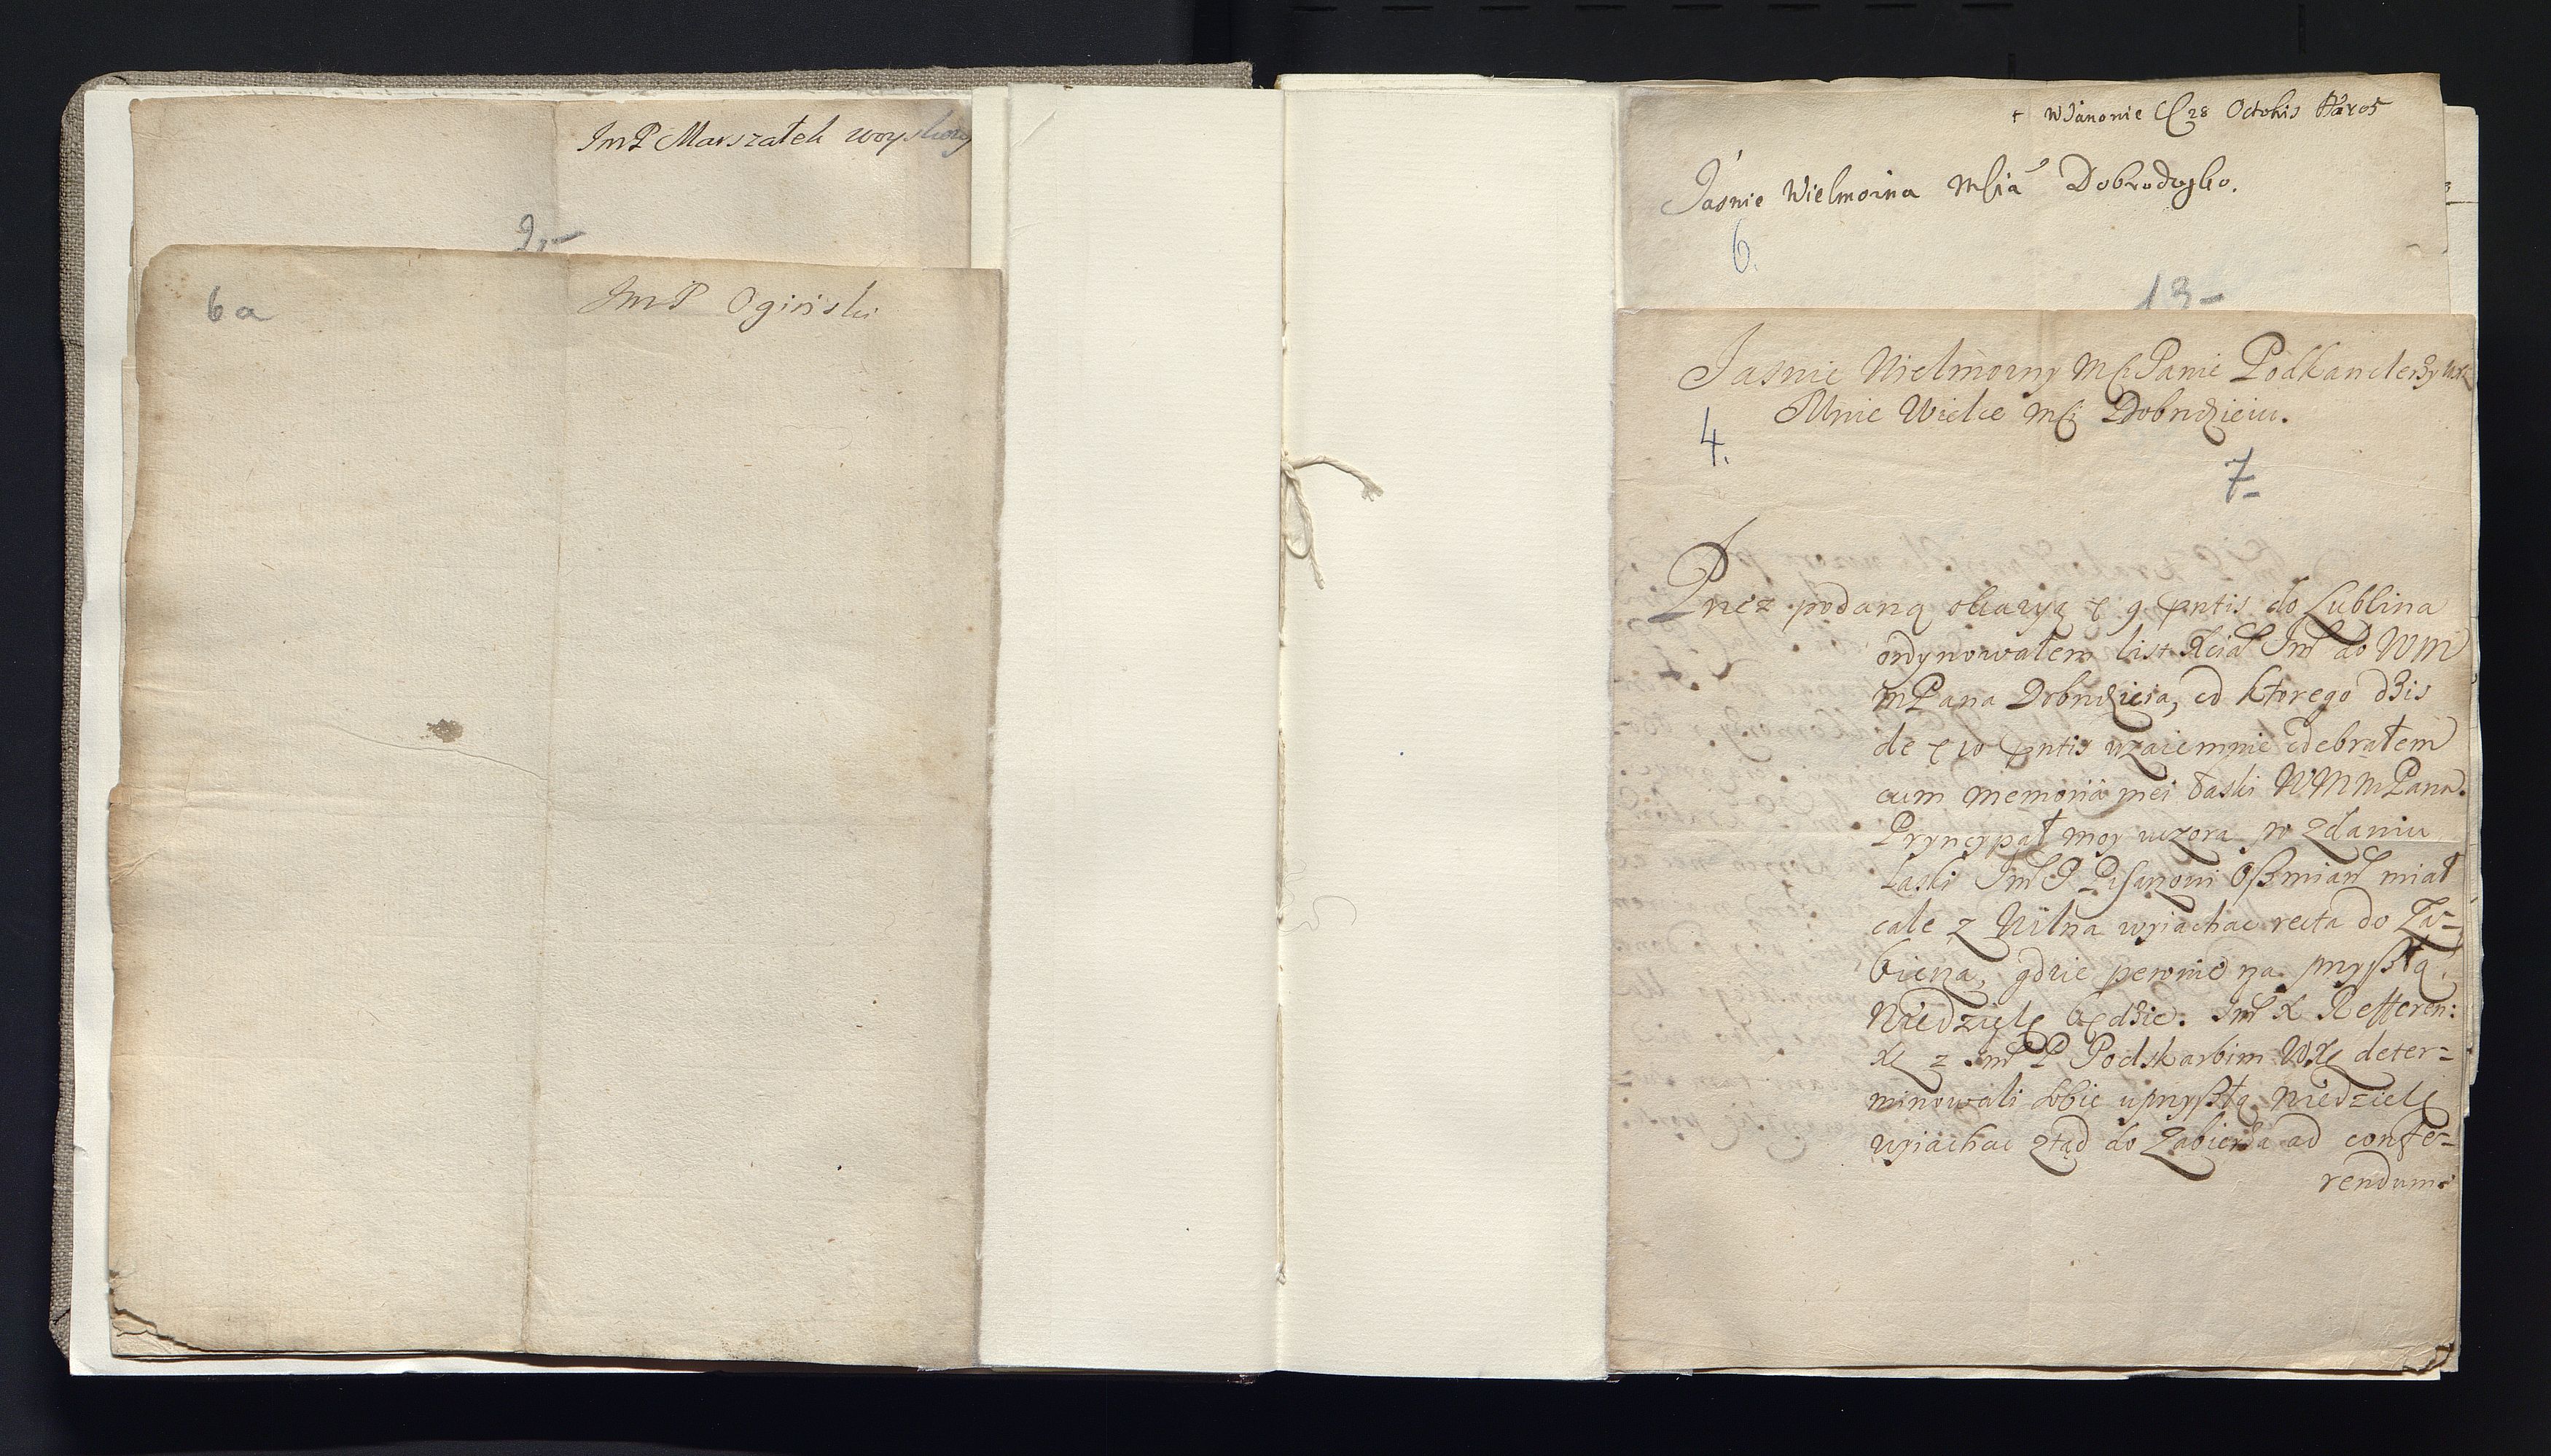 ImP Marszałek woyskowy
9.-
6a
ImP Ogiński
+ w Janonie 28 Octobris
Jaśnie Wielmożna Mścia Dobrodzyko.
6.
13-
Jasnie Wielmożny Mści Panie Podkanclerzy
Mnie Wielce Mści Dobrodzieiu.
4.
7-
Przez podaną okazyą 9 pntis do Lublina
ordynowałem list Im do WM
MPana Dobrodzieia, od ktorego dzis
de 10 pntis wzaiemnie odebrałem
cum memoria mei łaski WMMPana.
Pryncypał moy wczora po zdaniu
Laski Im P Pisarzowi Oszmian miał
cale z Wilna wyiachac recta do Za=
bierza, gdzie pewnie na przyszłą
Niedzielę będzie. Im X Refferen:
z Im P Podskarbim WXL deter=
minowali sobie w przyszłą Niedzielę
wyiachac ztąd do Zabierza ad confe=
rendum